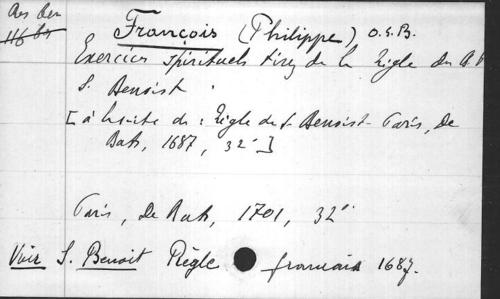 François (Philippe) O.S.B.
116
Exercices spirituels tirez de la Règle du
S. Benoist.
[à la suite de : Règle de S. Benoist. Paris, De
Bats, 1687, 32°]
Paris, De Bats, 1701, 32°
Voir S. Benoit Règle francais 1687.